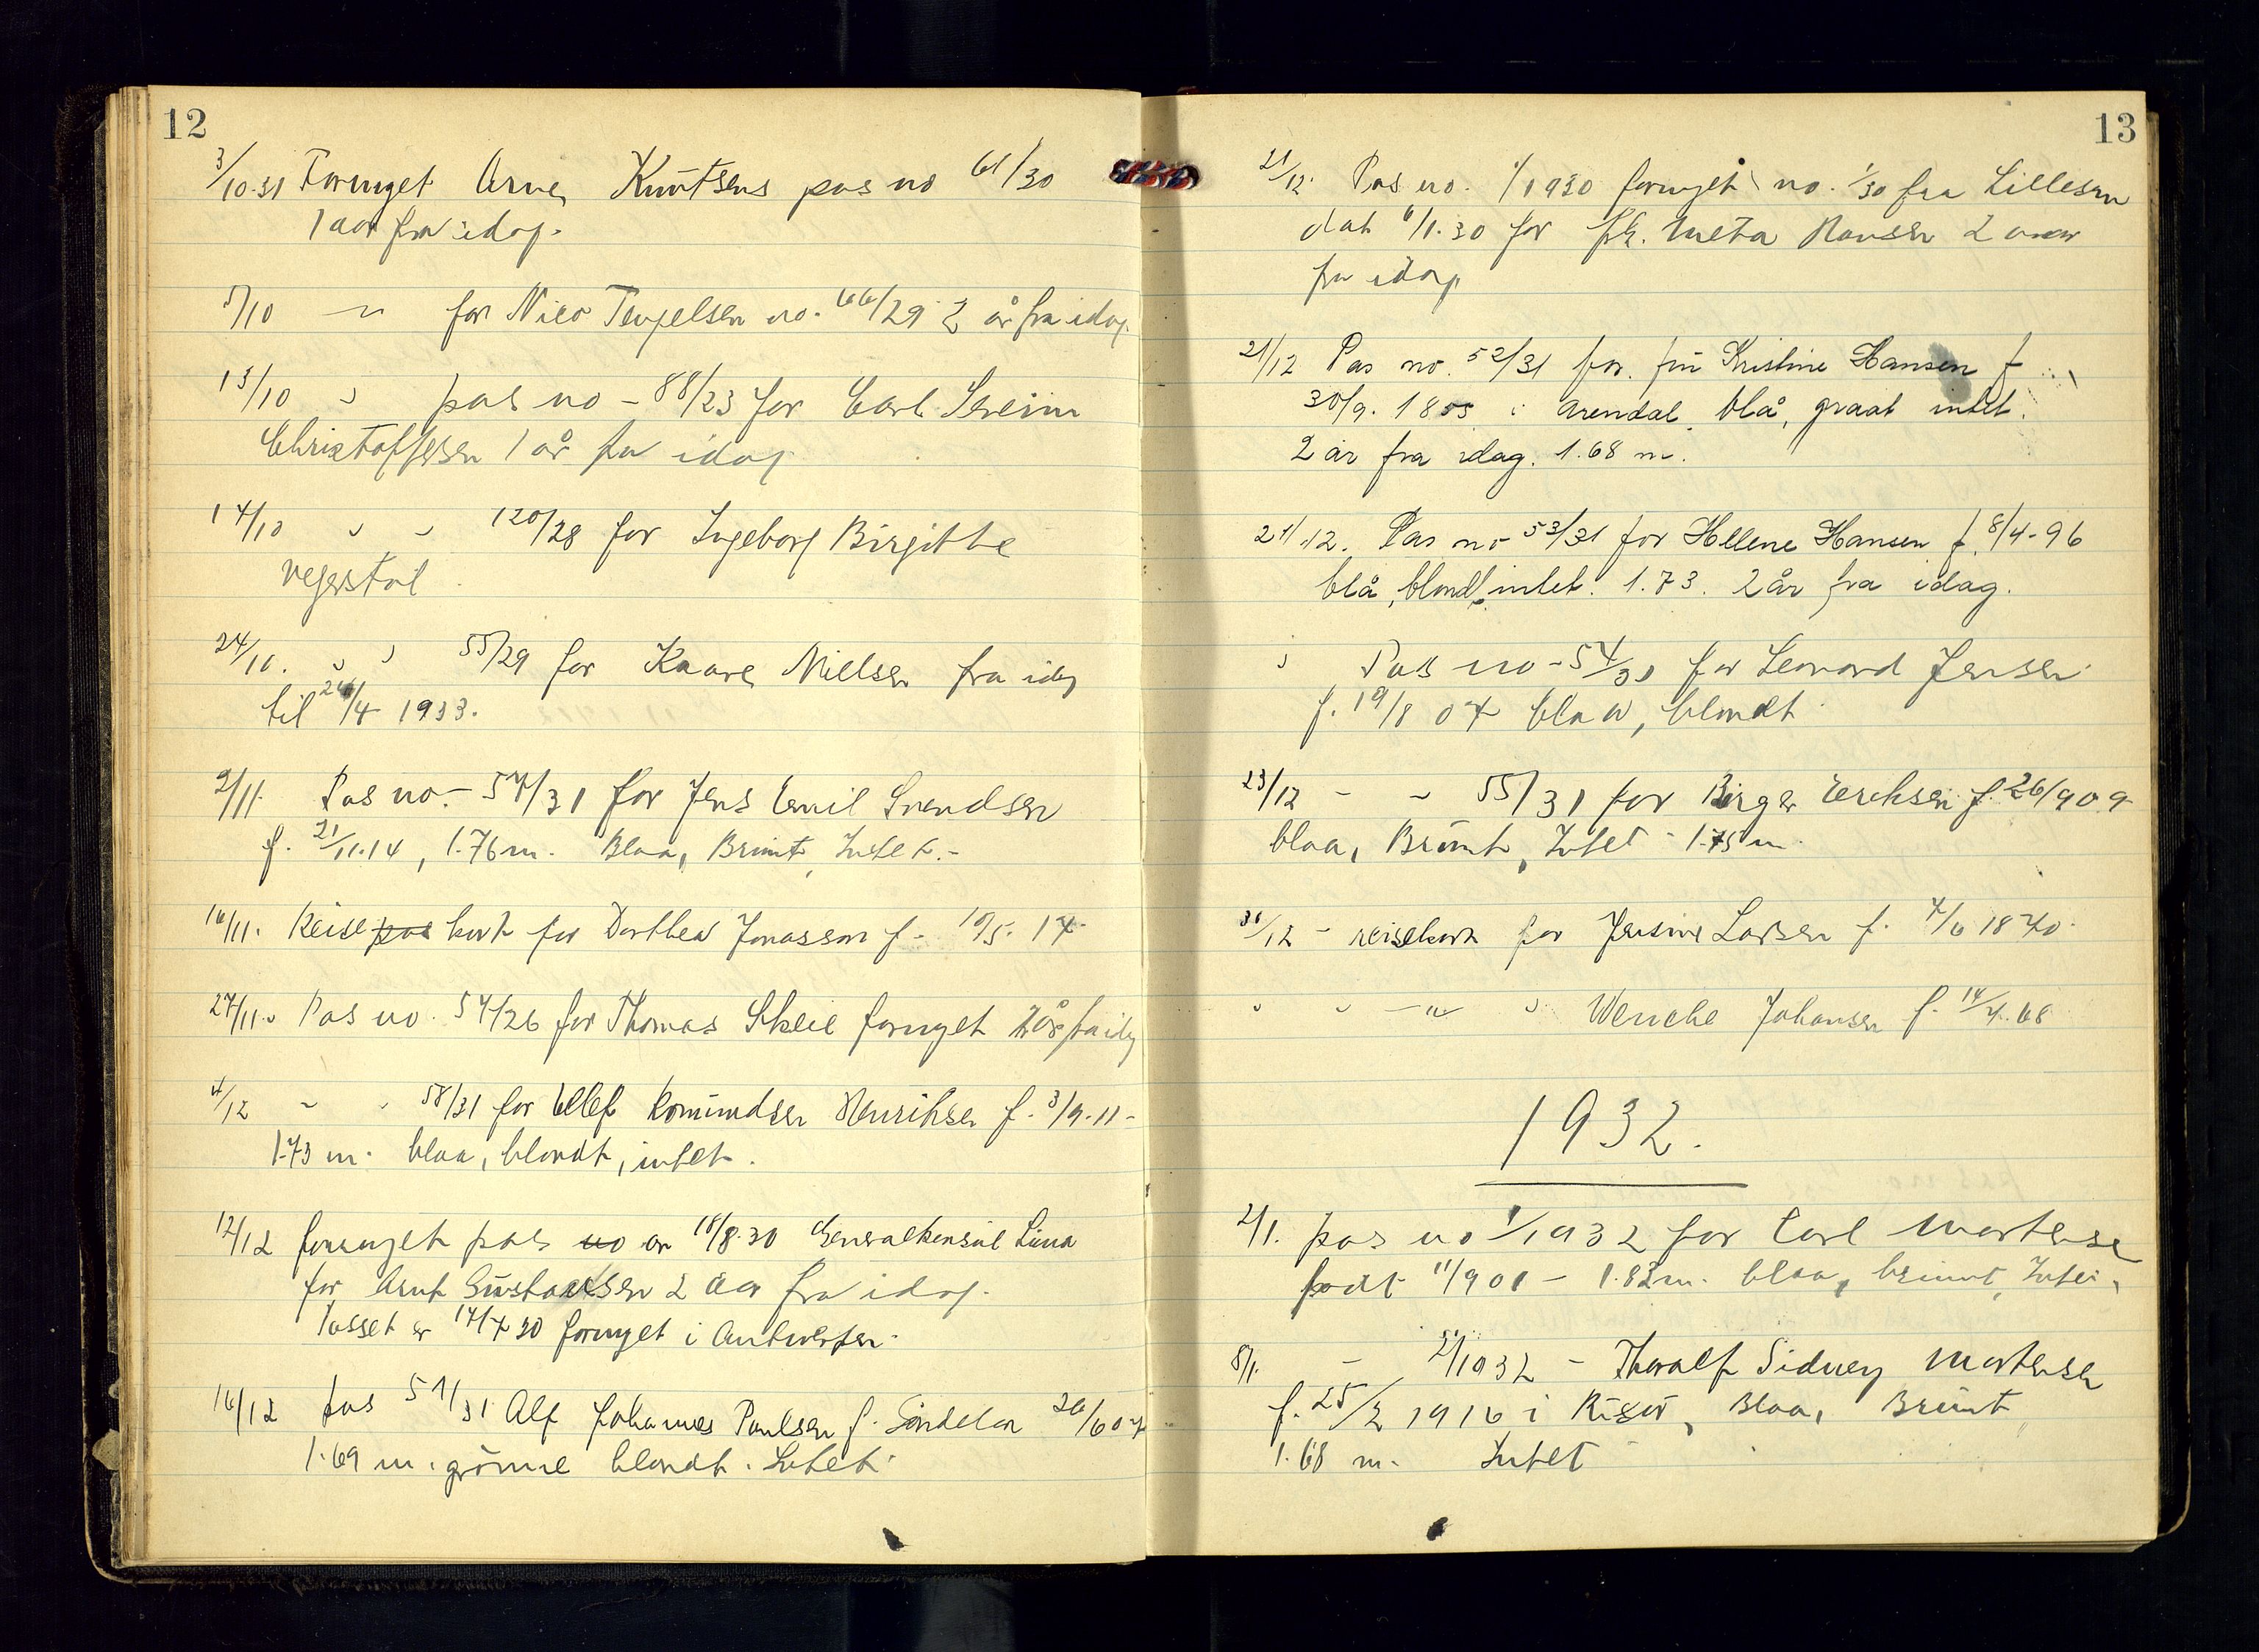 12
3/10-31 Fornyet Arne Knutsens pas no 61/30
1 aar fra idag.
5/10 — " for Nico Tengelsen no. 66/29 2 år fra idag.
13/10 " pas no - 88/23 for Carl Severin
Christoffersen 1 år fra idag
14/10 " " 120/28 for Ingeborg Birgitte
Vegerstøl
24/10. " " 55/29 for Kaare Nielsen fra idag
til 26/4 1933.
9/11. Pas no.- 57/31 for Jens Emil Svendsen
f. 21/11.14, 1.76 m. Blaa, Brunt, Intet.-
16/11. Reise pas kort for Dorthea Jonassen f. 10/5. 14
27/11. Pas no. 54/26 for Thomas Skeie fornyet 2 år fra idag
4/12 " " 58/31 for Ellef Romundsen Henriksen f. 3/9-11-
1.73 m. blaa, blondt, intet.
12/12 fornyet pas no av 18/8.30 Generalkonsul Lima
for Arnt Gustavsen 2 aar fra idag.
Passet er 17/7 30 fornyet i Antwerpen.
16/12 pas 51/31 Alf Johannes Paulsen f. Søndeled 26/6 07
1.69 m. grønne blondt. Intet.
13
21/12. Pas no. 1/1930 fornyet no. 1/30 fra Lillesan
dat 6/1.30 for frk. Meta Hansen 2 aar
fra idag
21/12 Pas no. 52/31 for fru Kristine Hansen f
30/9. 1855 i Arendal, blå, graat intet.
2 år fra idag. 1.68 m.
21/12. Pas no 53/31 for Hellene Hansen f. 8/4-96
blå, blondt, intet. 1.73. 2 år fra idag.
" Pas no - 54/31 for Leonard Jensen
f. 19/8 07 blaa, blondt
23/12 - " 55/31 for Birger Erichsen f. 26/9 09
blaa, Brunt, Intet - 1.75 m.
30/12 - reisekort for Jensine Larsen f. 4/6 1870.
" " —"— " Wenche Johansen f. 14/4.68
1932.
2/1. pas no 1/1932 for Carl Mortense
født 11/901 - 1.82 m. blaa, brunt, Intet.
8/1. - 2/1932 - Thoralf Sidney Mortensen
f. 25/2 1916 i Risør, Blaa, Brunt,
1.68 m. Intet